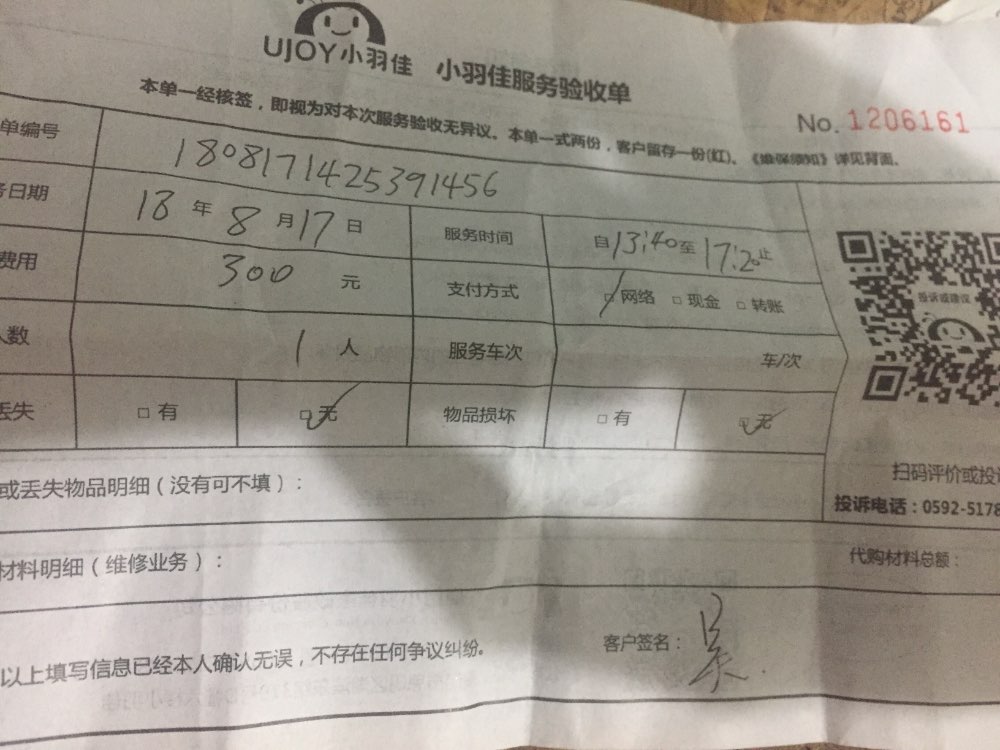 UJOY小羽佳 小羽佳服务验收单
No. 1206161
本单一经核签，即视为对本次服务验收无异议。本单一式两份，客户留存一份(红)、《维保须知》详见背面。
单编号 180817142539 1456
务日期 18 年 8 月 17 日 服务时间 自 13:40 至 17:20 止
费用 300 元 支付方式 □ 网络 □ 现金 □ 转账
人数 1 人 服务车次 车/次
丢失 □ 有 □ 无 物品损坏 □ 有 □ 无
投诉或建议
扫码评价或投诉
投诉电话：0592-5178
或丢失物品明细（没有可不填）：
材料明细（维修业务）： 代购材料总额：
以上填写信息已经本人确认无误，不存在任何争议纠纷。 客户签名：